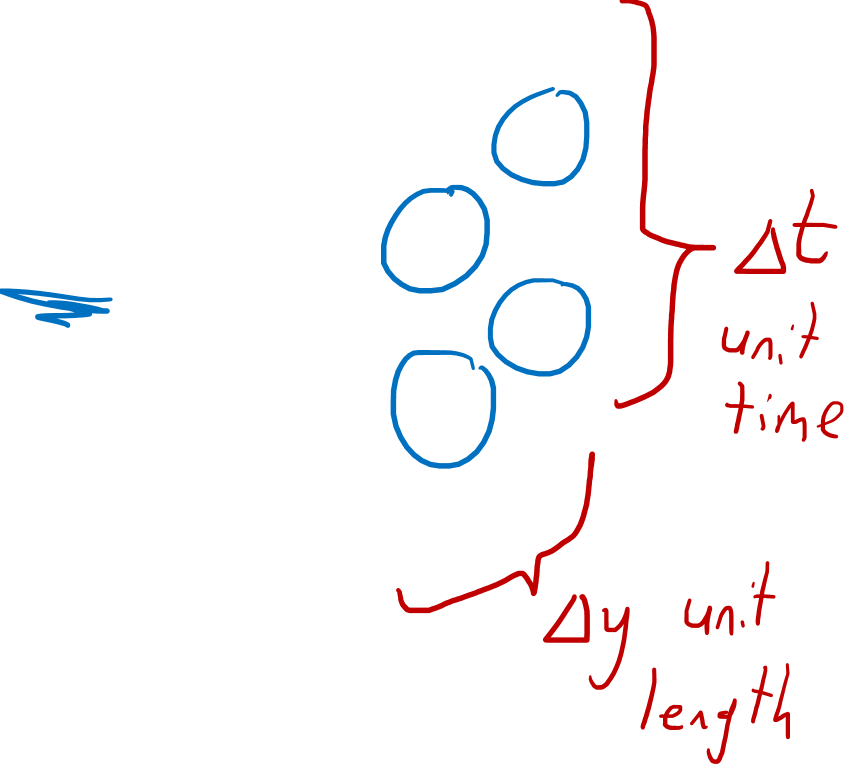 Δt
unit
time
Δy unit
length